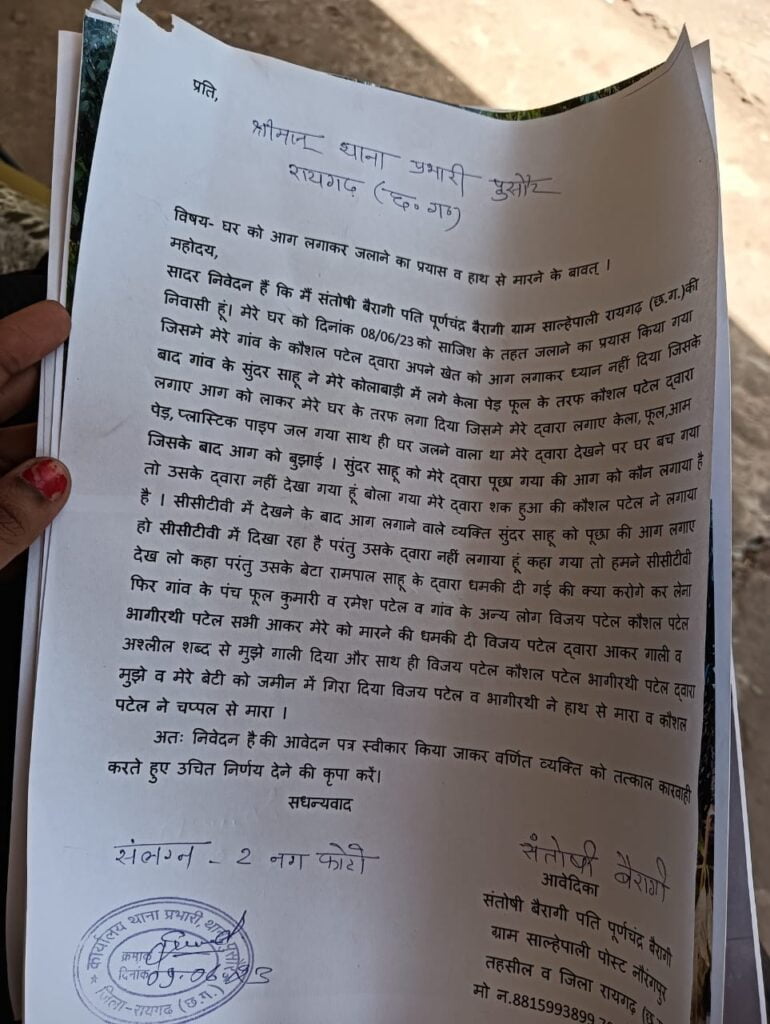 प्रति,
श्रीमान् थाना प्रभारी पुसौर
रायगढ़ (छ० ग०)
विषय- घर को आग लगाकर जलाने का प्रयास व हाथ से मारने के बावत् ।
महोदय,
सादर निवेदन हैं कि मैं संतोषी बैरागी पति पूर्णचंद्र बैरागी ग्राम साल्हेपाली रायगढ़ (छ.ग.)की
निवासी हूं। मेरे घर को दिनांक 08/06/23 को साजिश के तहत जलाने का प्रयास किया गया
जिसमे मेरे गांव के कौशल पटेल द्वारा अपने खेत को आग लगाकर ध्यान नहीं दिया जिसके
बाद गांव के सुंदर साहू ने मेरे कोलाबाड़ी में लगे केला पेड़ फूल के तरफ कौशल पटेल द्वारा
लगाए आग को लाकर मेरे घर के तरफ लगा दिया जिसमे मेरे द्वारा लगाए केला, फूल,आम
पेड़, प्लास्टिक पाइप जल गया साथ ही घर जलने वाला था मेरे द्वारा देखने पर घर बच गया
जिसके बाद आग को बुझाई । सुंदर साहू को मेरे द्वारा पूछा गया की आग को कौन लगाया है
तो उसके द्वारा नहीं देखा गया हूं बोला गया मेरे द्वारा शक हुआ की कौशल पटेल ने लगाया
है । सीसीटीवी में देखने के बाद आग लगाने वाले व्यक्ति सुंदर साहू को पूछा की आग लगाए
हो सीसीटीवी में दिखा रहा है परंतु उसके द्वारा नहीं लगाया हूं कहा गया तो हमने सीसीटीवी
देख लो कहा परंतु उसके बेटा रामपाल साहू के द्वारा धमकी दी गई की क्या करोगे कर लेना
फिर गांव के पंच फूल कुमारी व रमेश पटेल व गांव के अन्य लोग विजय पटेल कौशल पटेल
भागीरथी पटेल सभी आकर मेरे को मारने की धमकी दी विजय पटेल द्वारा आकर गाली व
अश्लील शब्द से मुझे गाली दिया और साथ ही विजय पटेल कौशल पटेल भागीरथी पटेल द्वारा
मुझे व मेरे बेटी को जमीन में गिरा दिया विजय पटेल व भागीरथी ने हाथ से मारा व कौशल
पटेल ने चप्पल से मारा ।
अतः निवेदन है की आवेदन पत्र स्वीकार किया जाकर वर्णित व्यक्ति को तत्काल कारवाही
करते हुए उचित निर्णय देने की कृपा करें।
सधन्यवाद
संलग्न - 2 नग फोटो
संतोषी बैरागी
आवेदिका
संतोषी बैरागी पति पूर्णचंद्र बैरागी
ग्राम साल्हेपाली पोस्ट नौरंगपुर
तहसील व जिला रायगढ़ (छ.
मो न.8815993899
कार्यालय थाना प्रभारी, थाना पुसौर
क्रमांक
दिनांक 09.06
जिला-रायगढ़ (छ.ग.)